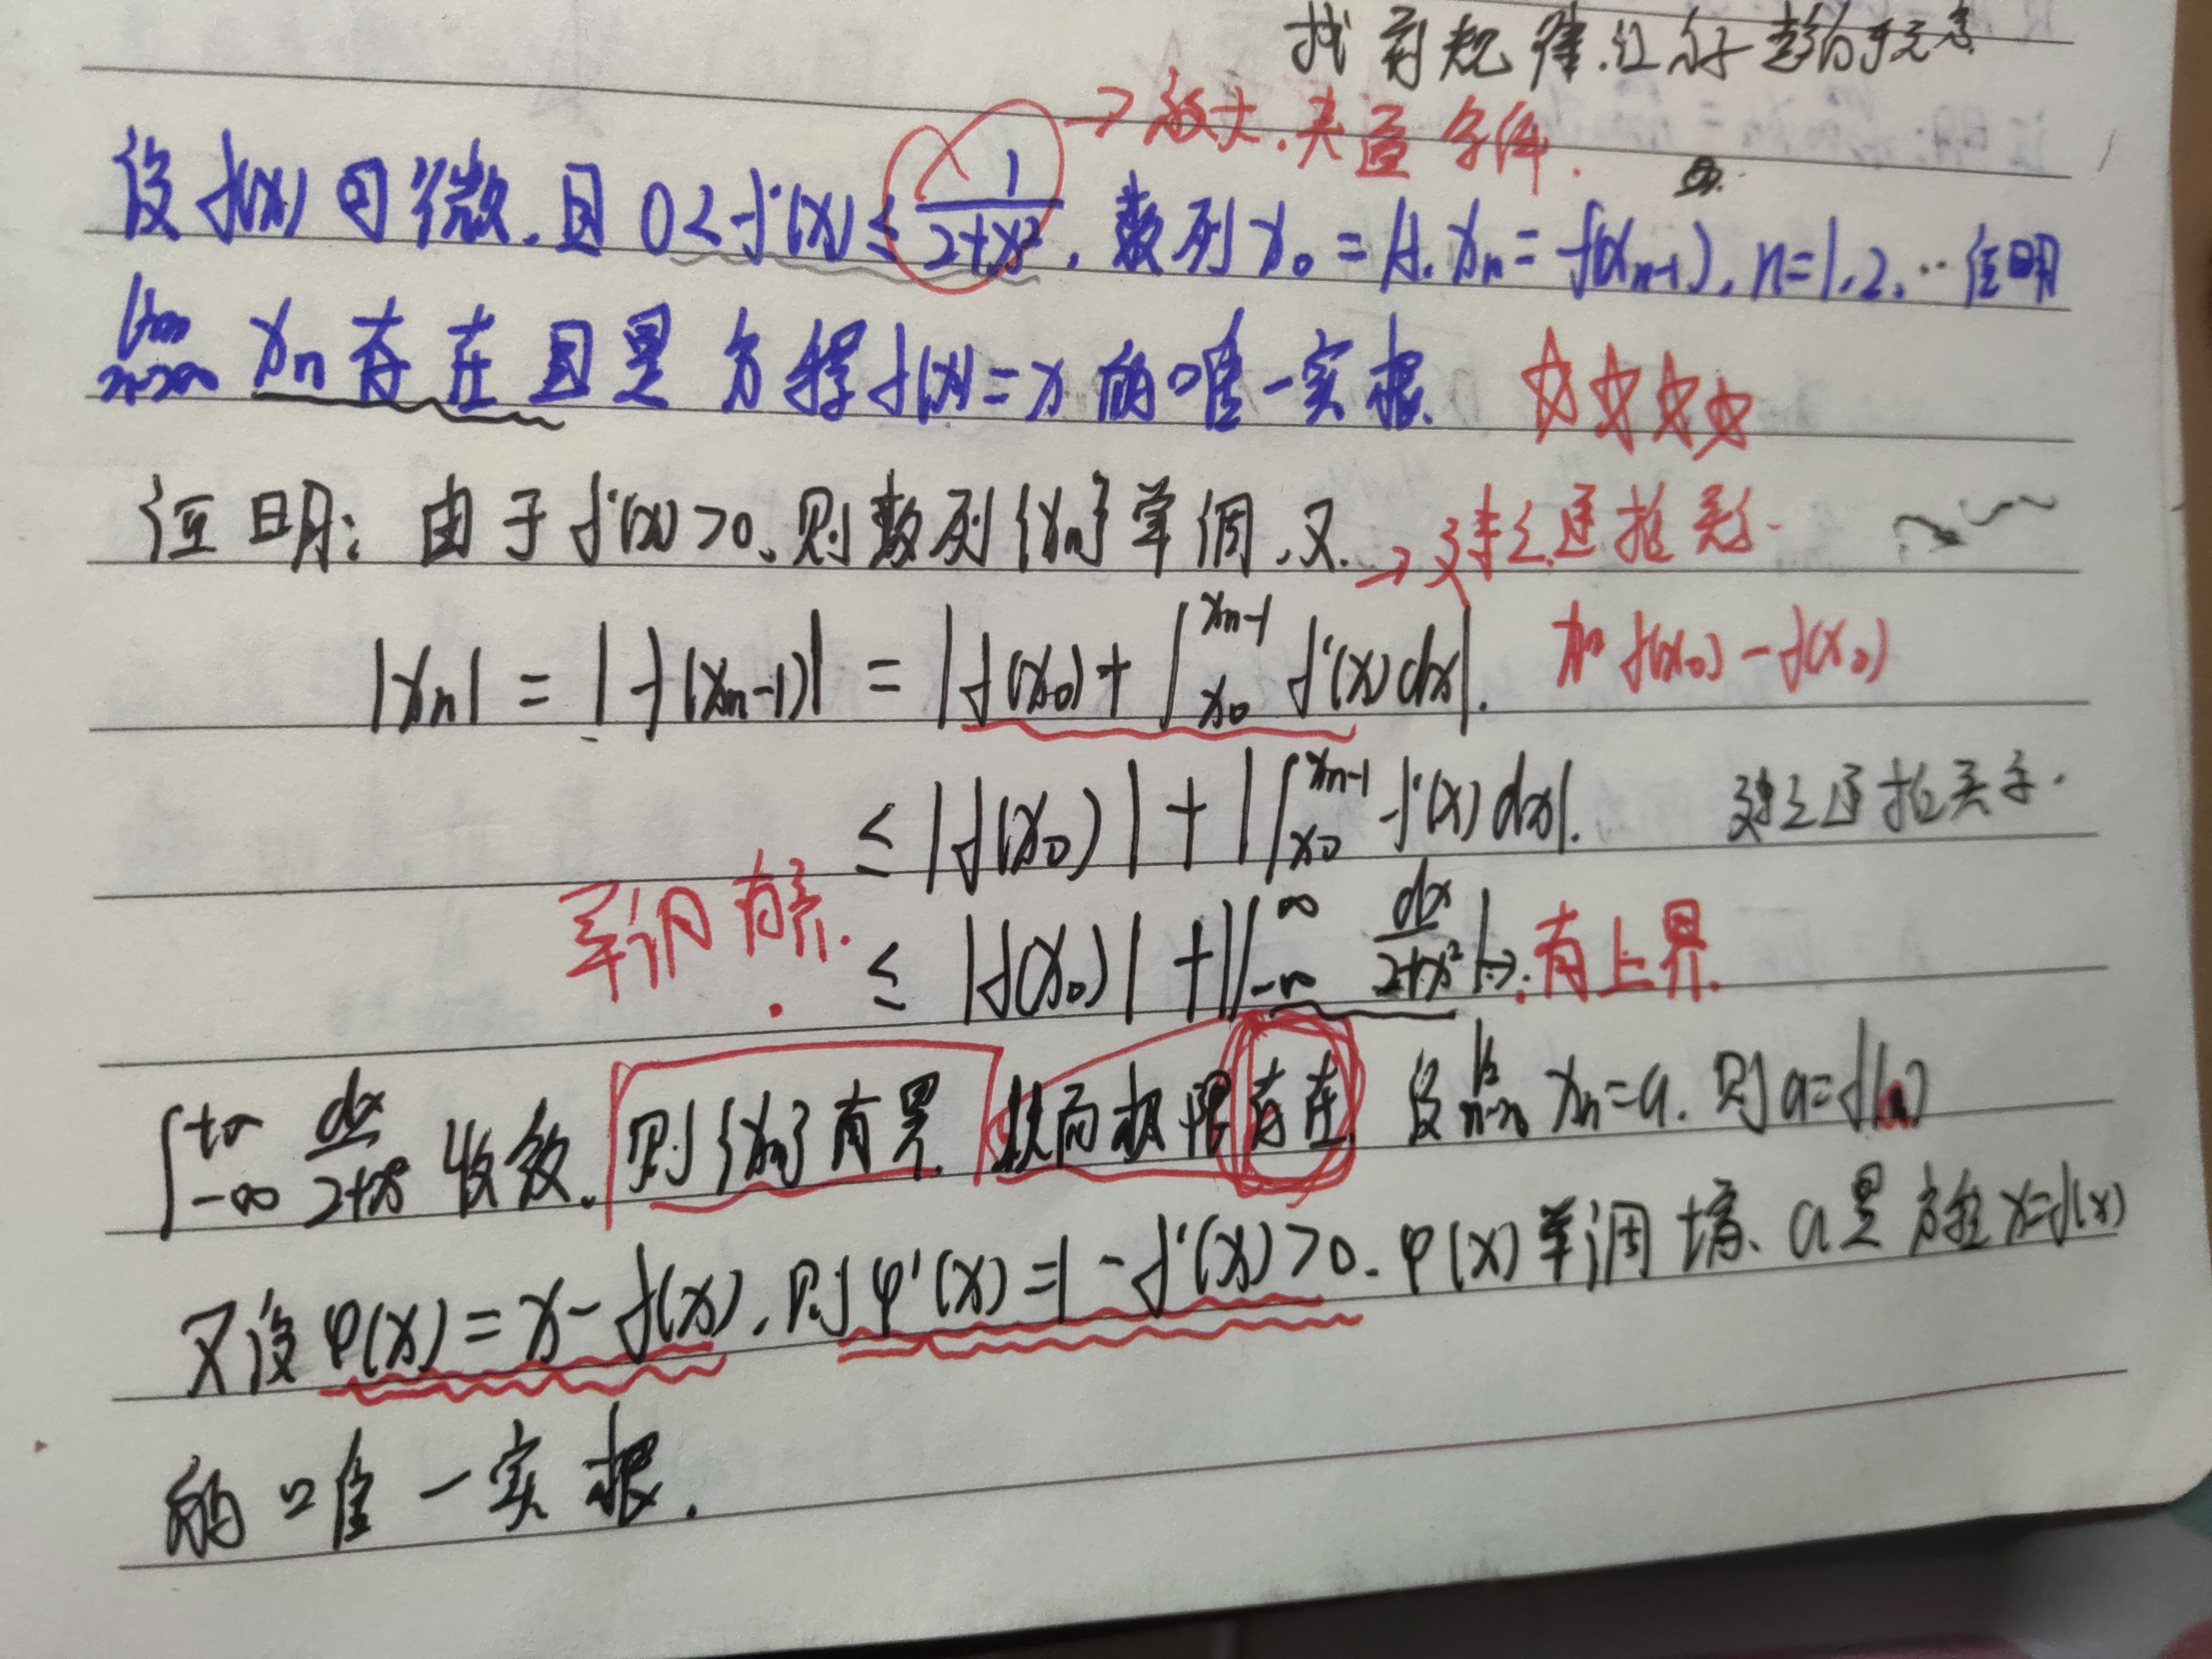 找前规律.让
→ 放大.夹逼条件.
设f(x)可微.且0<f'(x)≤1/(2+x²).数列x₀=A.xₙ=f(xₙ₋₁),n=1.2.…证明
lim n→∞ xₙ存在且是方程f(x)=x的唯一实根.
证明:由于f'(x)>0.则数列{xₙ}单调.又.→建立递推关.
|xₙ|=|f(xₙ₋₁)|=|f(x₀)+∫_{x₀}^{xₙ₋₁}f'(x)dx|. 加f(x₀)-f(x₀)
≤|f(x₀)|+|∫_{x₀}^{xₙ₋₁}f'(x)dx|. 建立递推关系.
单调有界.
≤|f(x₀)|+|∫_{-∞}^{∞}dx/(2+x²)|→.有上界.
∫_{-∞}^{+∞}dx/(2+x²)收敛.则{xₙ}有界.从而极限存在.设lim n→∞ xₙ=a.则a=f(a)
又设φ(x)=x-f(x).则φ'(x)=1-f'(x)>0.φ(x)单调增、a是方程x=f(x)
的唯一实根.